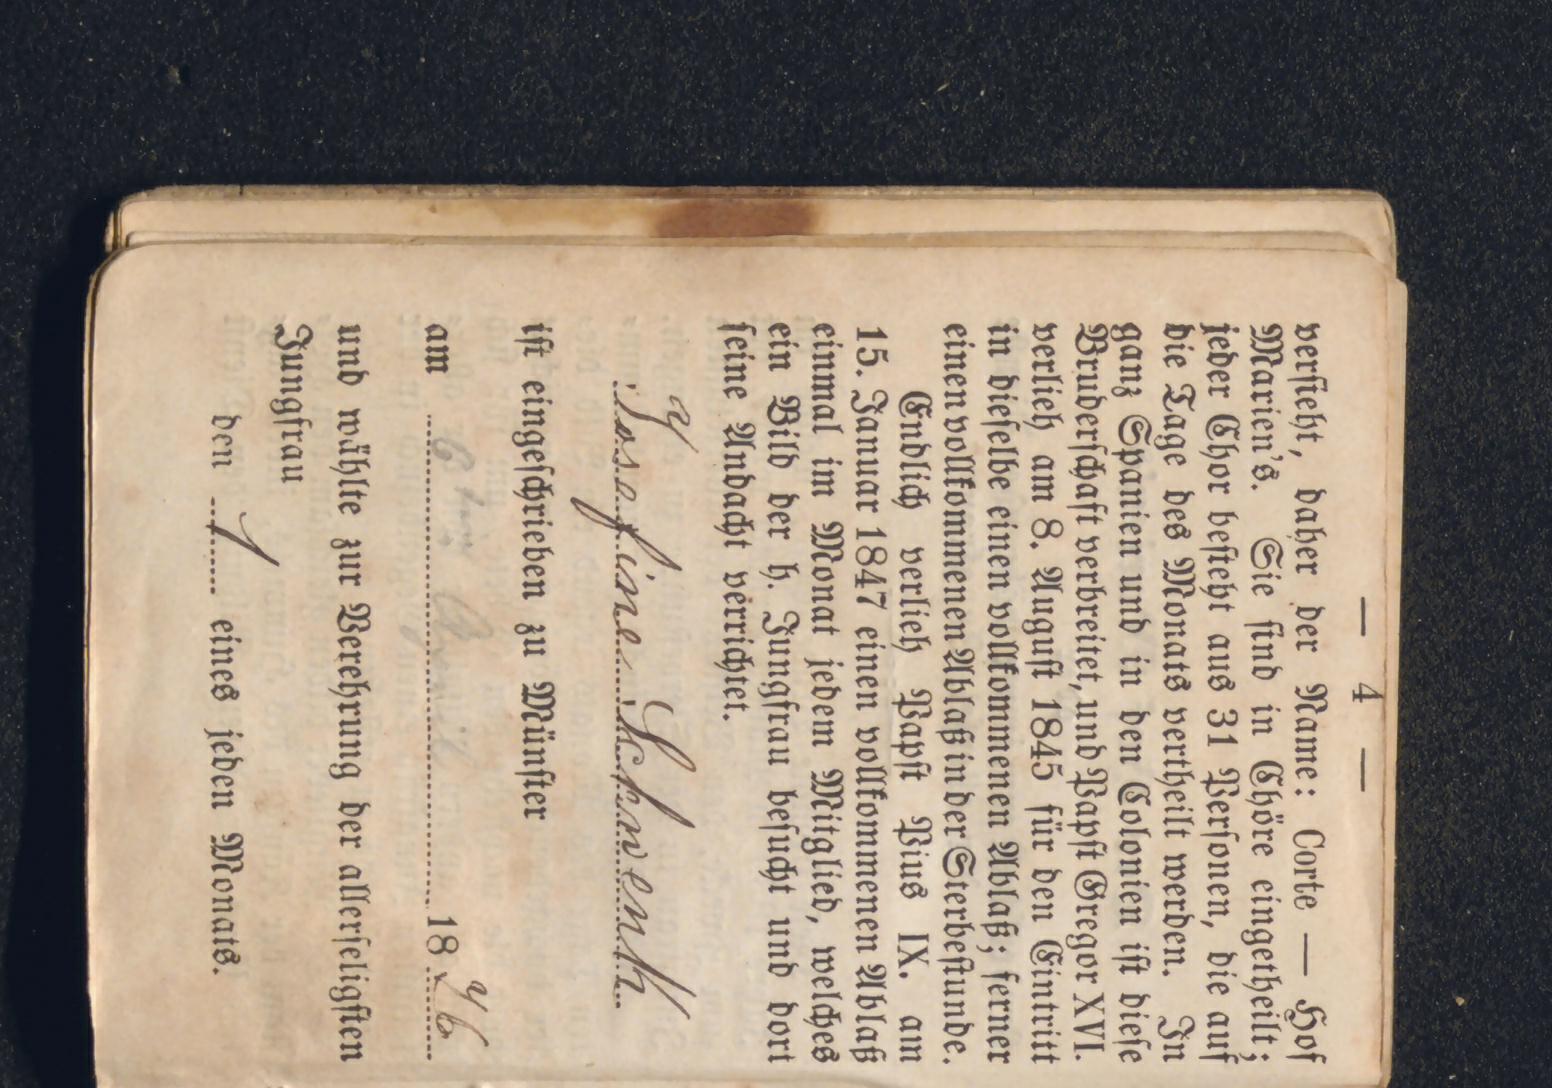 — 4 —
versieht, daher der Name: Corte — Hof
Marien's. Sie sind in Chöre eingetheilt;
jeder Chor besteht aus 31 Personen, die auf
die Tage des Monats vertheilt werden. In
ganz Spanien und in den Colonien ist diese
Bruderschaft verbreitet, und Papst Gregor XVI.
verlieh am 8. August 1845 für den Eintritt
in dieselbe einen vollkommenen Ablaß; ferner
einen vollkommenen Ablaß in der Sterbestunde.
Endlich verlieh Papst Pius IX. am
15. Januar 1847 einen vollkommenen Ablaß
einmal im Monat jedem Mitglied, welches
ein Bild der h. Jungfrau besucht und dort
seine Andacht verrichtet.
Josefine Schwenk
ist eingeschrieben zu Münster
am 18 76
und wählte zur Verehrung der allerseligsten
Jungfrau
den 1 eines jeden Monats.